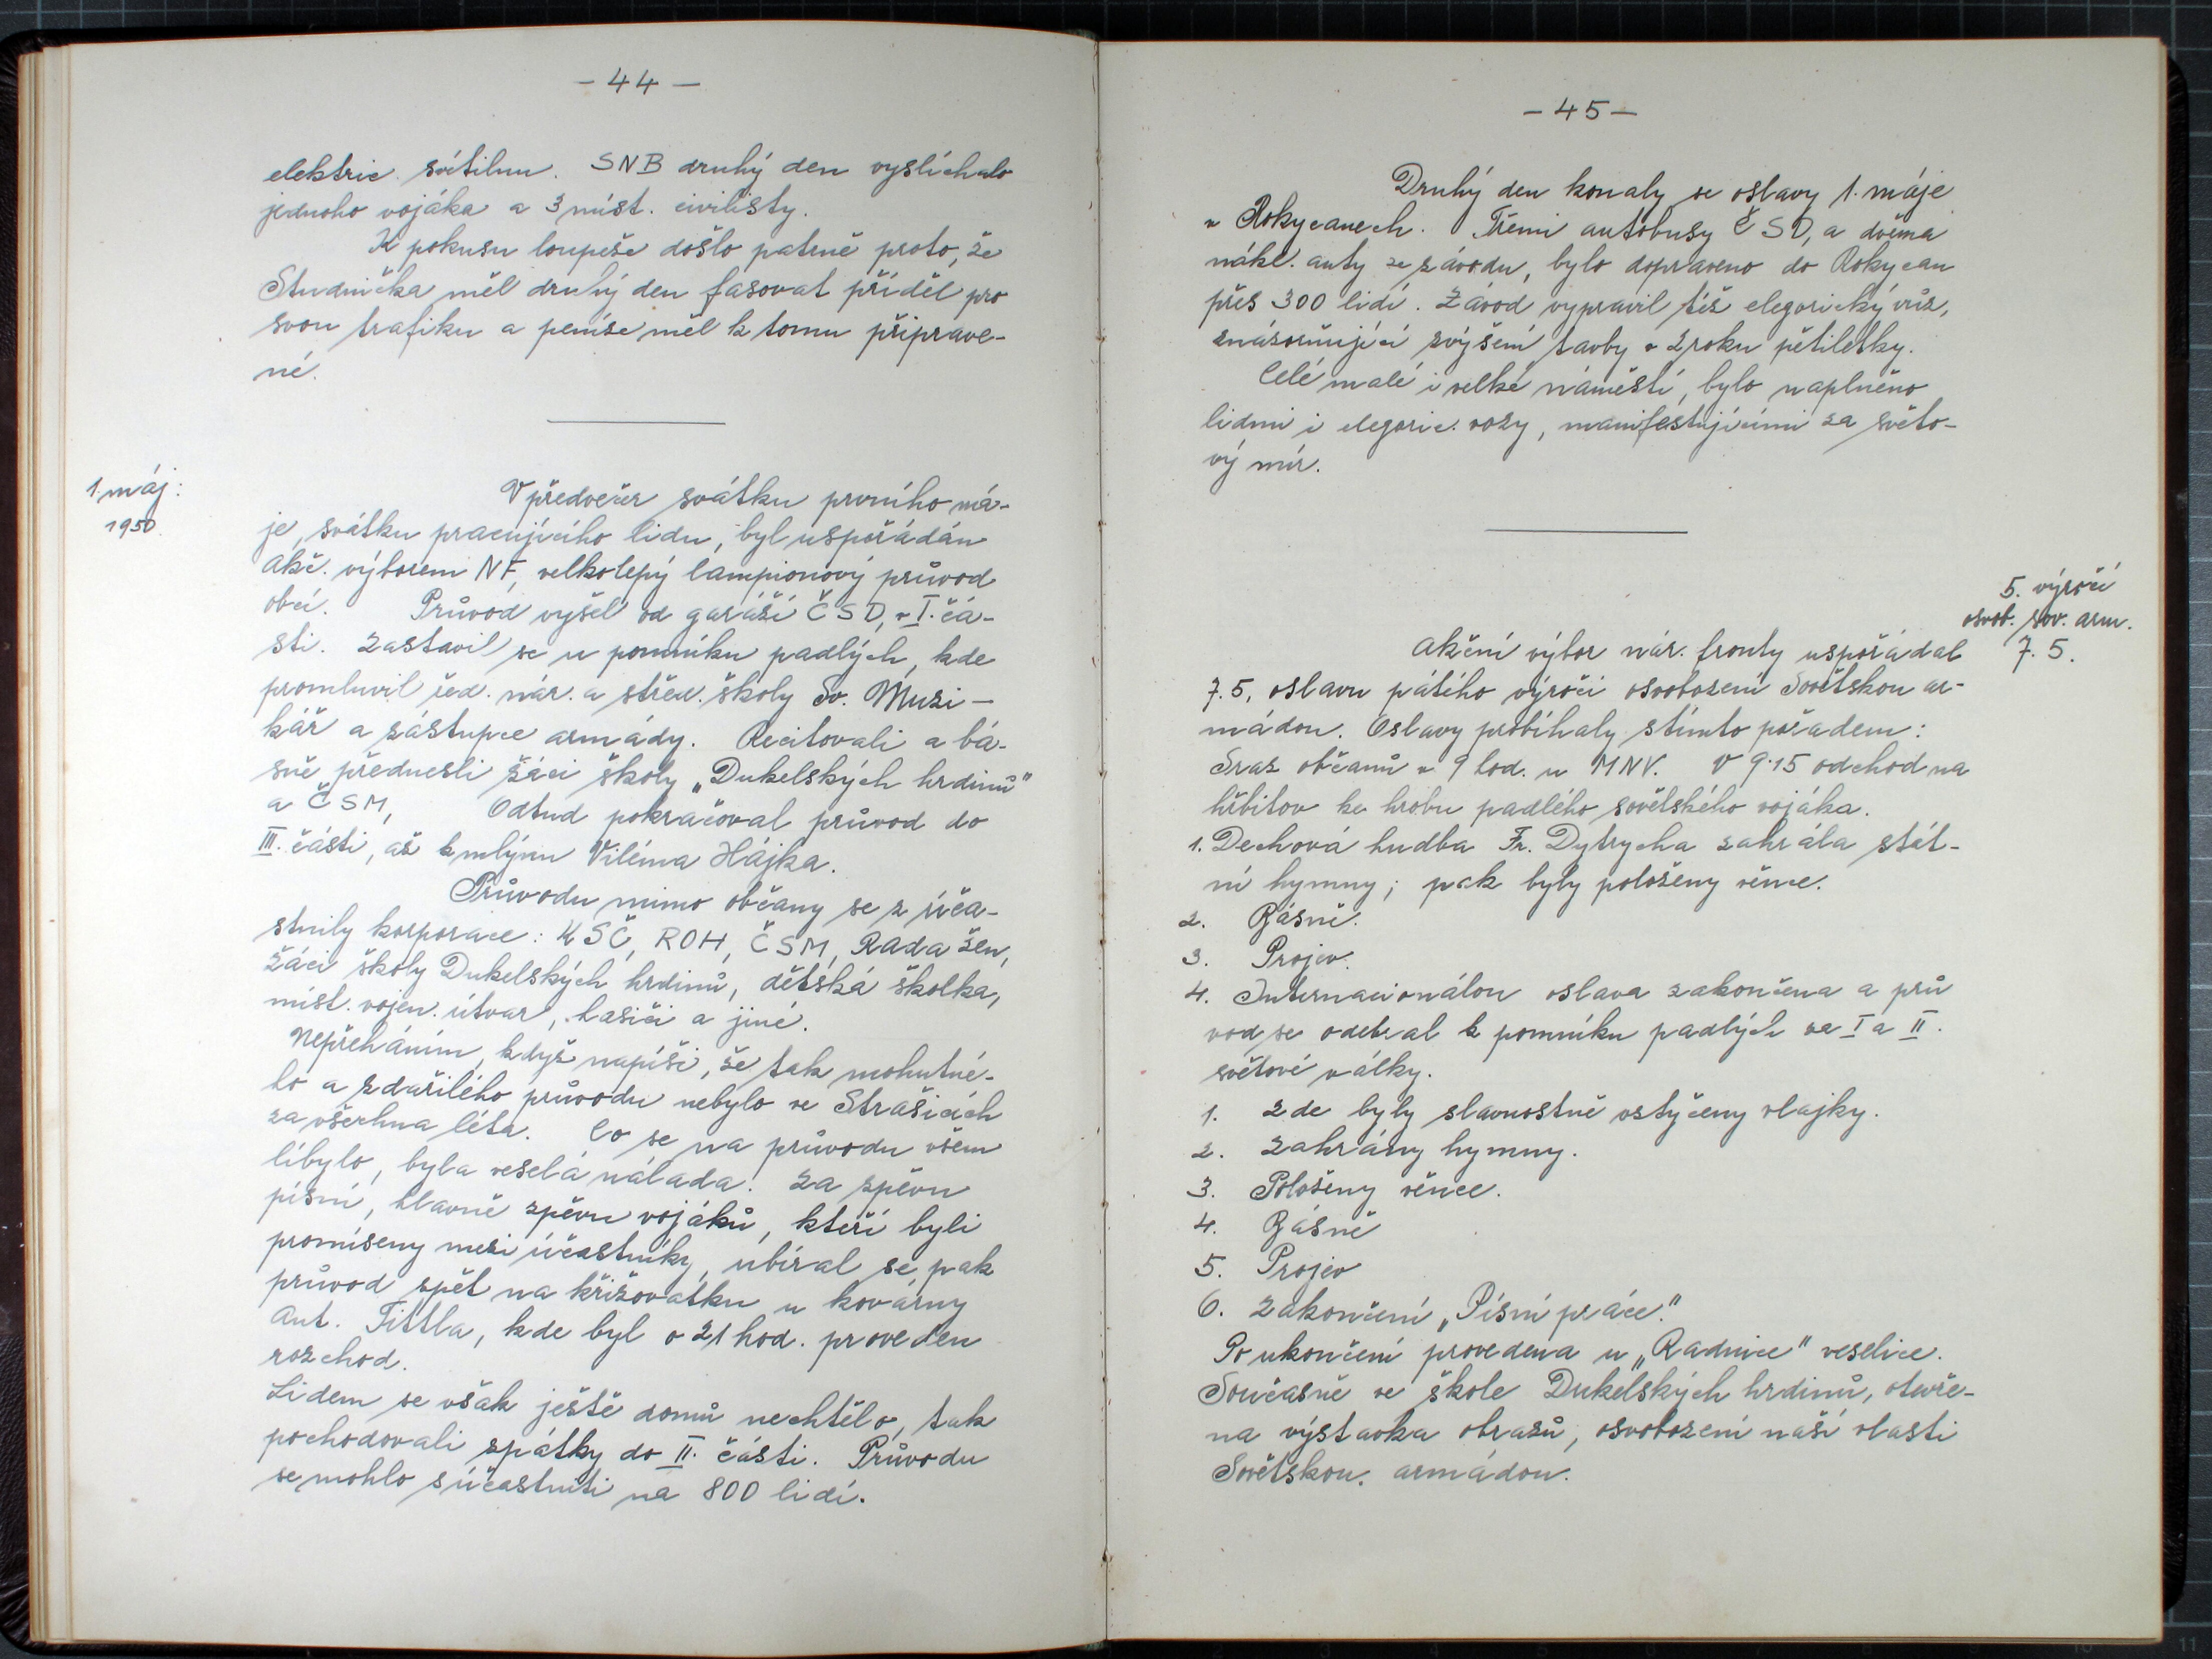 - 44 -
elektric. svítilnu. SNB druhý den vyslíchalo
jednoho vojáka a 3 míst. civilisty.
K pokusu loupeže došlo patrně proto, že
Studnička měl druhý den fasovat příděl pro
svou trafiku a peníze měl k tomu připrave-
né.
1. máj:
1950.
V předvečer svátku prvního má-
je, svátku pracujícího lidu, byl uspořádán
akč. výborem NF, velkolepý lampionový průvod
obcí. Průvod vyšel od garáží ČSD, v I. čá-
sti. Zastavil se u pomníku padlých, kde
promluvil řed. nár. a střed. školy Sv. Muzi-
kář a zástupce armády. Recitovali a bá-
sně přednesli žáci školy „Dukelských hrdinů"
a ČSM, Odtud pokračoval průvod do
III. části, až k mlýnu Viléma Hájka.
Průvodu mimo občany se z úča-
stnily korporace: KSČ, ROH, ČSM, Rada žen,
žáci školy Dukelských hrdinů, dětská školka,
míst. vojen. útvar, hasiči a jiné.
Nepřeháním, když napíši, že tak mohutné-
ho a zdařilého průvodu nebylo ve Strašicích
za všechna léta. Co se na průvodu všem
líbylo, byla veselá nálada. Za zpěvu
písní, hlavně zpěvu vojáků, kteří byli
promíseny mezi účastníky, ubíral se pak
průvod zpět na křižovatku u kovárny
Ant. Tittla, kde byl o 21 hod. proveden
rozchod.
Lidem se však ještě domů nechtělo, tak
pochodovali zpátky do II. části. Průvodu
se mohlo súčastniti na 800 lidí.
- 45 -
Druhý den konaly se oslavy 1. máje
v Rokycanech. Třemi autobusy ČSD, a dvěma
nákl. auty ze závodu, bylo dopraveno do Rokycan
přes 300 lidí. Závod vypravil též elegorický vůz,
znázorňující zvýšení tavby v 2 roku pětiletky.
Celé malé i velké náměstí, bylo naplněno
lidmi i elegoric. vozy, manifestujícími za světo-
vý mír.
5. výročí
osvob. sov. arm.
7. 5.
Akční výbor nár. fronty uspořádal
7. 5. oslavu pátého výročí osvobození Sovětskou ar-
mádou. Oslavy probíhaly stímto pořadem:
Sraz občanů v 9 hod. u MNV. V 9.15 odchod na
hřbitov ke hrobu padlého sovětského vojáka.
1. Dechová hudba Fr. Dytrycha zahrála stát-
ní hymny; pak byly položeny věnce.
2. Básně.
3. Projev.
4. Internacionálou oslava zakončena a prů
vod se odebral k pomníku padlých ve I a II.
světové války.
1. Zde byly slavnostně vstyčeny vlajky.
2. Zahrány hymny.
3. Položeny věnce.
4. Básně
5. Projev
6. Zakončení „Písní práce."
Po ukončení provedena u „Radnice" veselice.
Současně ve škole Dukelských hrdinů, otevře-
na výstavka obrazů, osvobození naší vlasti
Sovětskou. armádou.